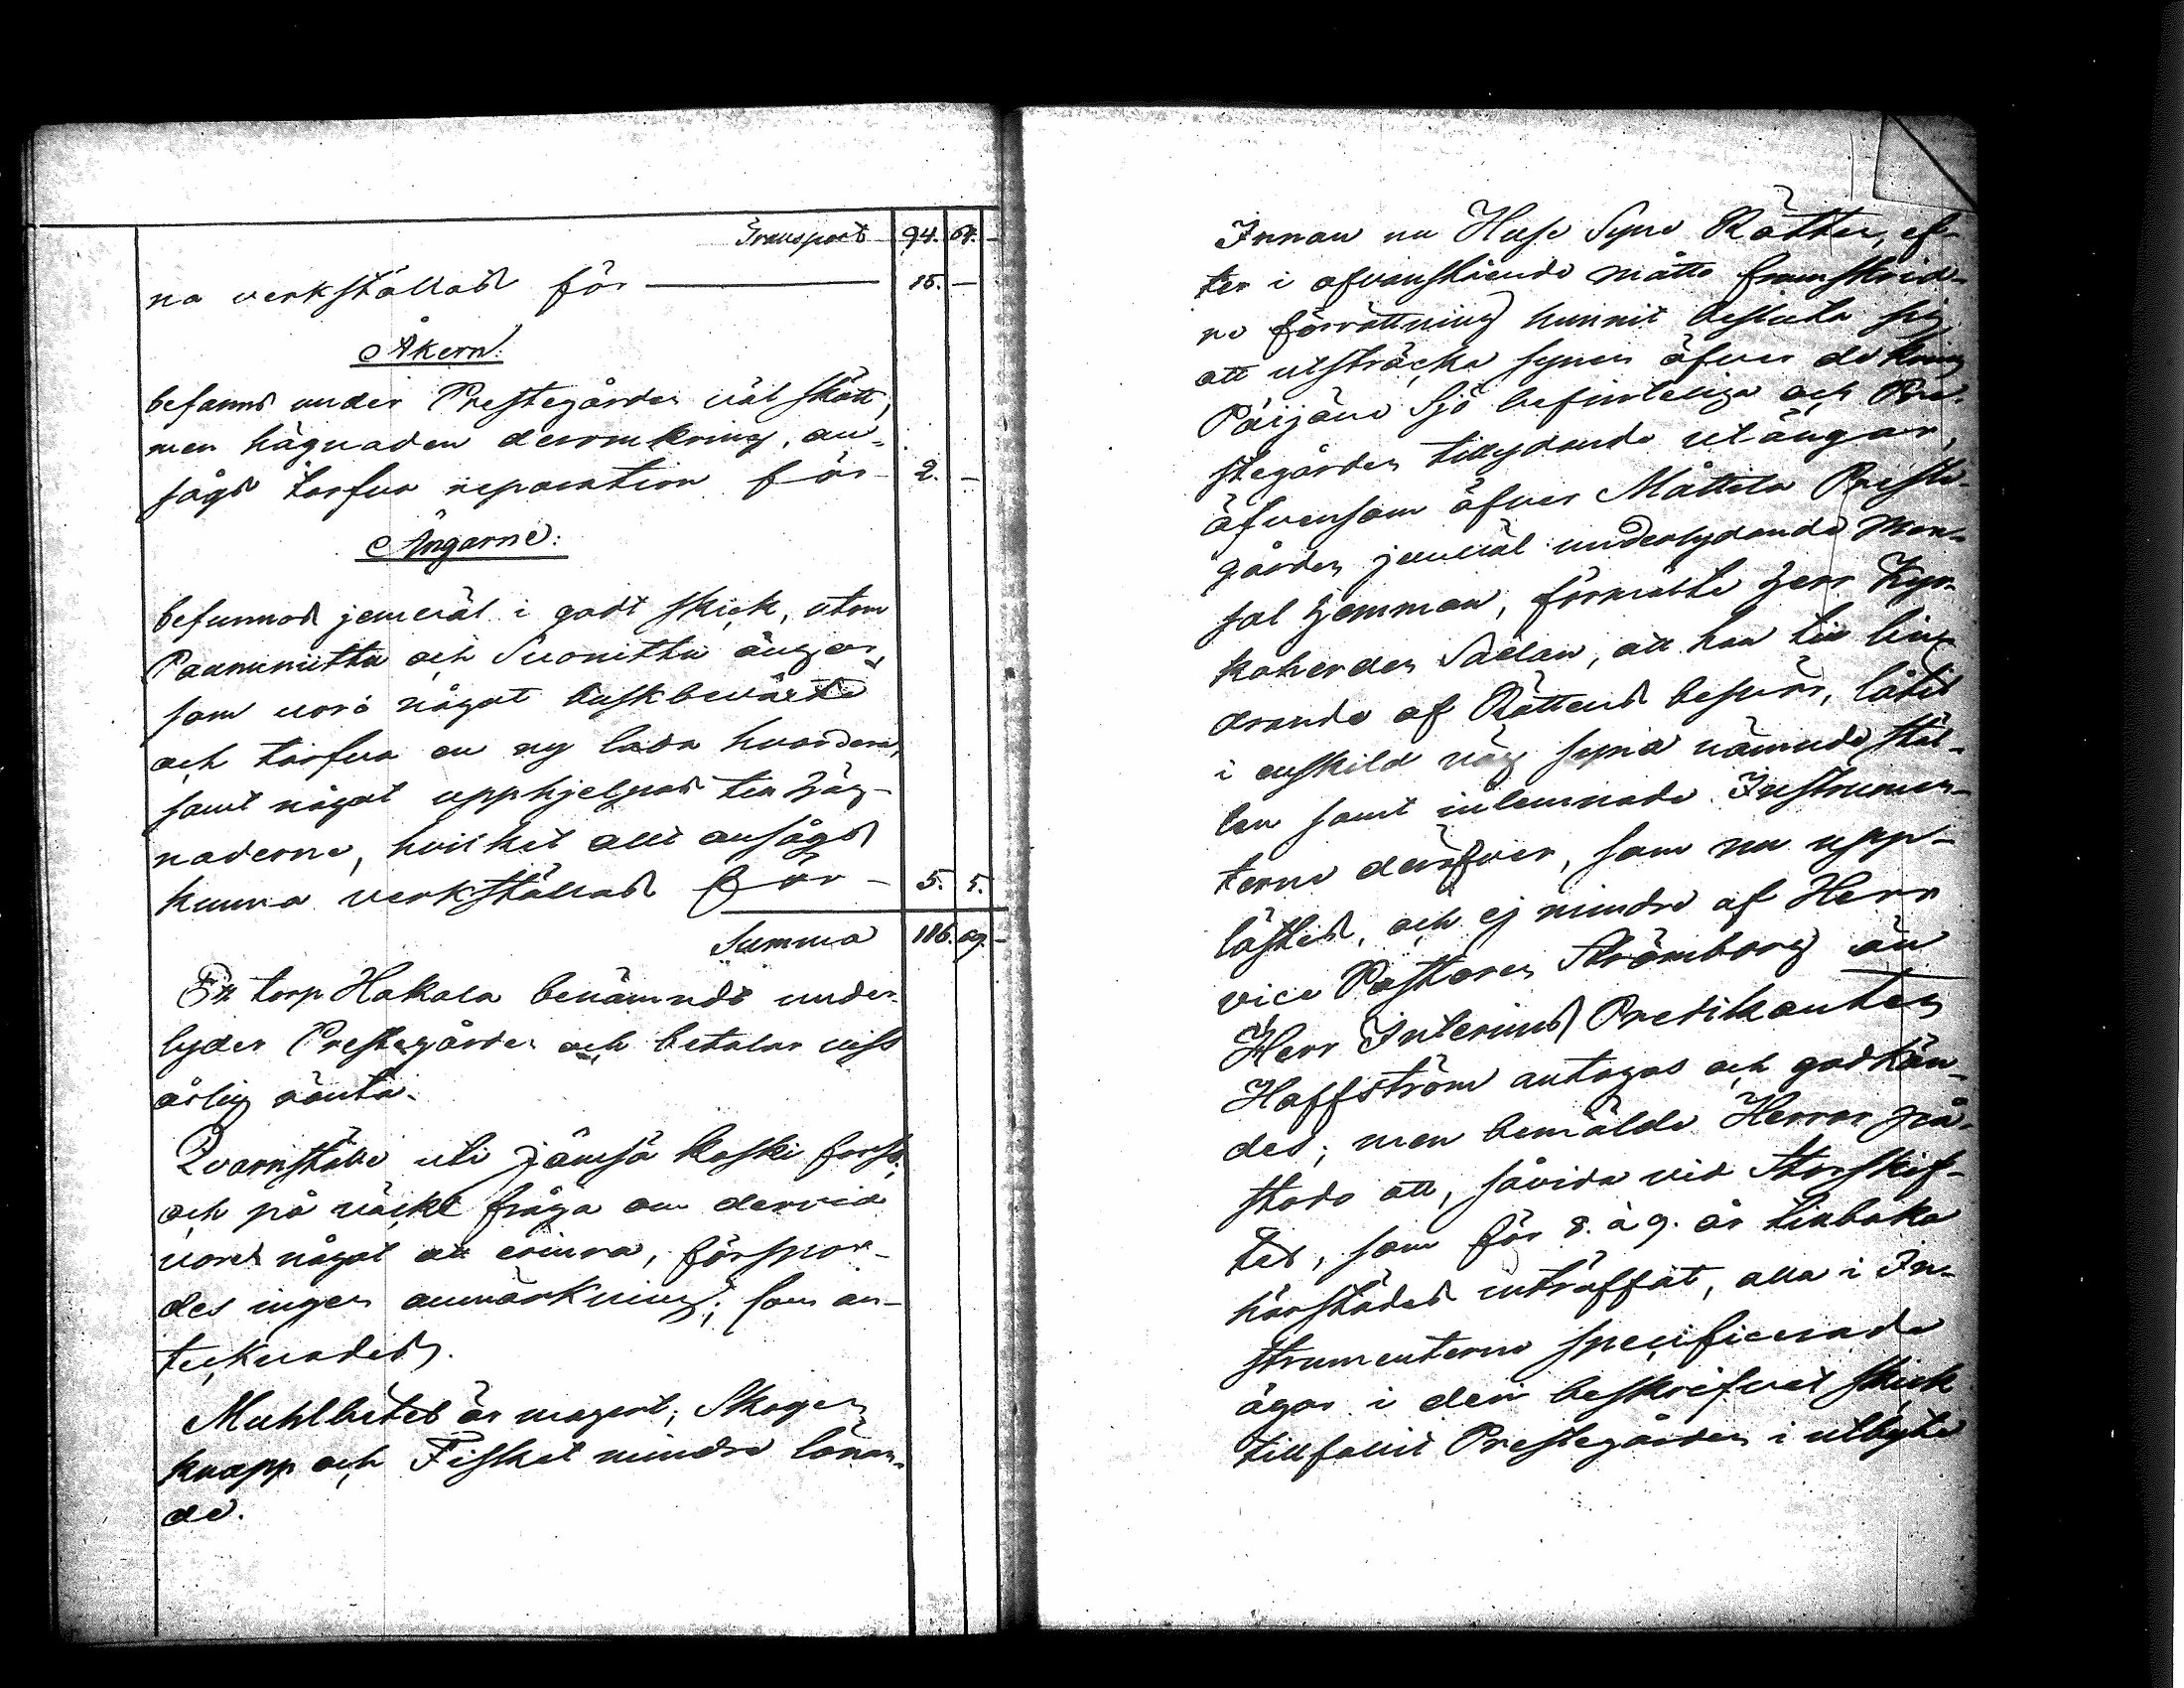 Transport 94. 64. –
na verkställas för — 15. –
Åkern:
befanns under Prestegården väl skött,
men hägnaden deromkring, an-
sågs tarfva reparation för – 2. –
Ängarne:
befunnos jemväl i godt skick, utom
Paununiittu och Suonittu ängar,
som voro något buskbeväxte
och tarfva en ny lada hvardera,
samt något upphjelpas till häg-
naderne, hvilket allt ansågs
kunna verkställas för – 5. 5.
Summa 116. 69. –
Ett torp Hakala benämndt under-
lyder Prestegården och betalar viss
årlig ränta.
Qvarnställe uti Jämsä koski forss,
och på väckt fråga om dervid
vore något att erinra, förspor-
des ingen anmärkning; som an-
tecknades.
Muhlbetet är magert, Skogen
knapp och Fisket mindre lönan-
de.
Innan nu Huse Syns Rätten, ef-
ter i ofvanstående måtto framskrid-
ne förrättning hunnit besluta sig
att utsträcka synen öfver de kring
Päijäne Sjö befintliga och Pre-
stegården tillydande utängar,
äfvensom öfver Måttila Preste-
gården jemväl underlydande Man-
tal hemman, förmälte Herr Kyr-
koherden Saelan, att han till lind-
rande af Rättens besvär, låtit
i enskild väg syna nämnde stäl-
len samt inlemnade Instrumen-
terne deröfver, som nu upp-
lästes, och ej mindre af Herr
vice Pastoren Strömborg än
Herr Interims Predikanten
Hoffström antogos och godkän-
des; men bemälde Herrar på-
stodo att, såvida vid Storskif-
tet, som för 8. à 9. år tillbaka
härstädes inträffat, alla i In-
strumenterne specificerade
ägor i den beskrifvet skick
tillfallit Prestegården i utbyte